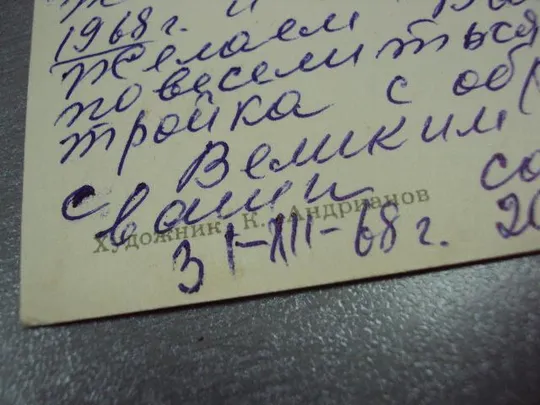 1968г.
Желаем
повеселиться
тройка с
Великим
с
вами
Художник К. Андрианов
31-XII-68г. 20